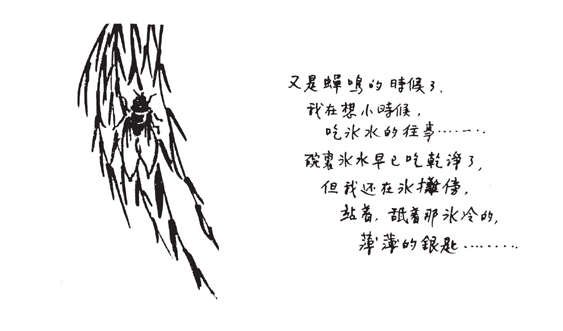 又是蟬鳴的時候了.
我在想小時候,
吃氷水的往事………
碗裏氷水早已吃乾淨了,
但我还在氷攤傍,
站着. 舐着那氷冷的,
薄薄的銀匙………